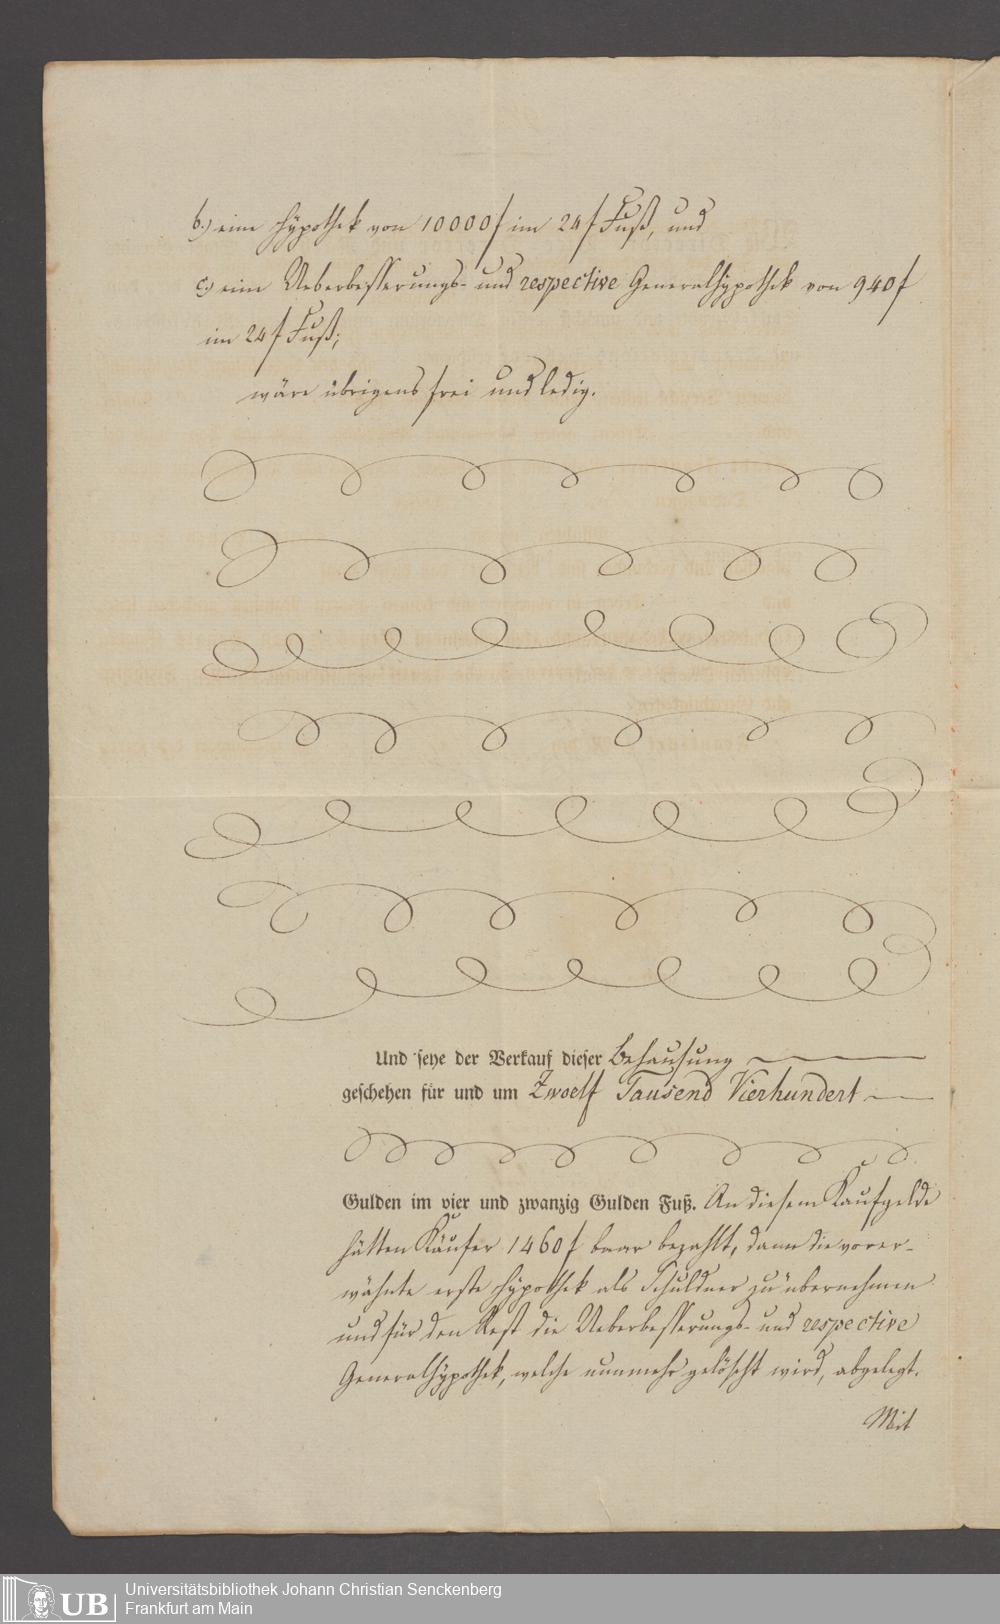 b.) eine Hypothek von 10000 f im 24 f Fuß, und
c.) eine Ueberbesserungs- und respective Generalhypothek von 940 f
im 24 f Fuß;
wäre übrigens frei und ledig.
Und seye der Verkauf dieser Behausung
geschehen für und um Zwoelf Tausend Vierhundert
Gulden im vier und zwanzig Gulden Fuß. An diesem Kaufgelde
hätten Käufer 1460 f baar bezahlt, dann die vorer-
wähnte erste Hypothek als Schuldner zu übernehmen
und für den Rest die Ueberbesserungs- und respective
Generalhypothek, welche nunmehr gelöscht wird, abgelegt.
Mit
UB
Universitätsbibliothek Johann Christian Senckenberg
Frankfurt am Main